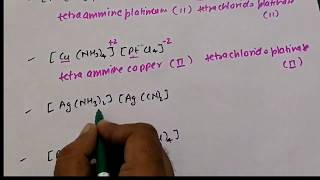 tetraammine platinum (II) tetrachlorido platinate (II)
- [Cu (NH₃)₄]⁺² [Pt Cl₄]⁻²
tetraammine copper (II) tetrachlorido platinate (II)
- [Ag(NH₃)₂] [Ag(CN)₂]